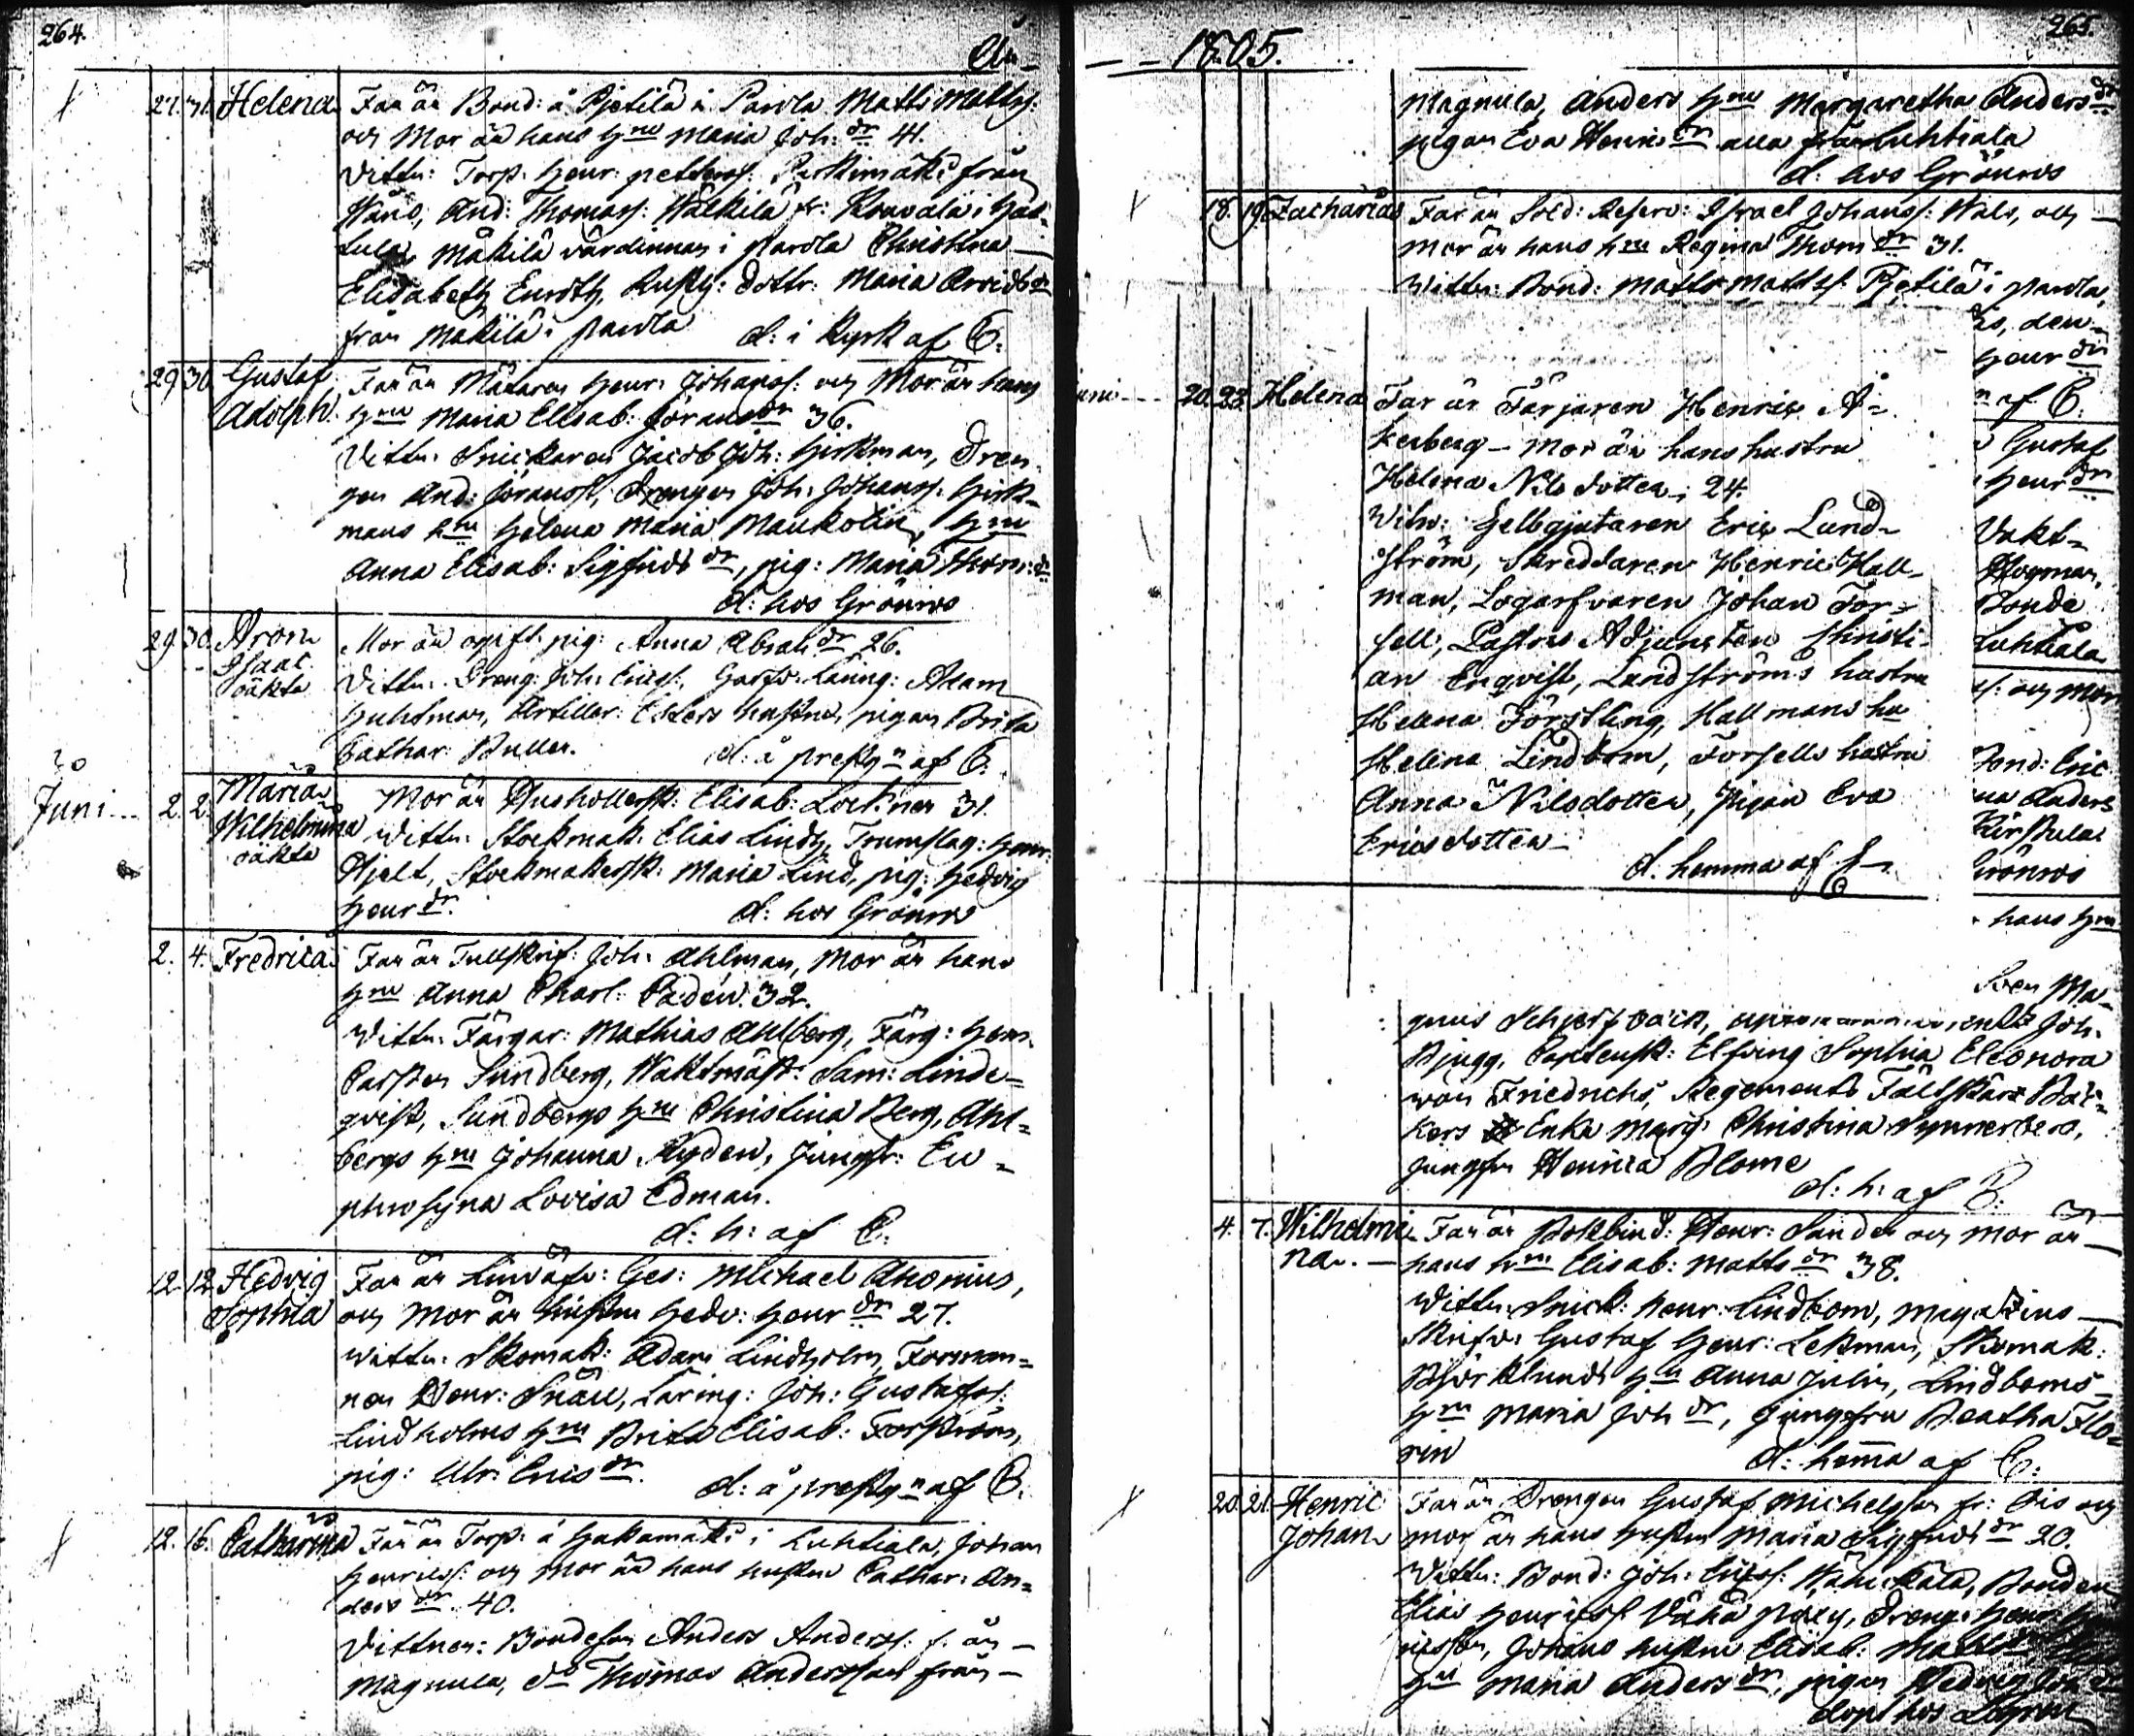 264.
An-
27. 31. Helena Far är Bond: å Pjetilä i Parola Matts Mattss:
och Mor är hans hru Maria Joh: dr 41.
Vittn: Torp. Henr: Petterss: Parkimäki från
And: Thomass: Wälkilä fr: i Hat-
tula, Mäkilä värdinnan i Parola Christina
Elisabeth dottr: Maria Arvidsdr
från Mäkilä i Parola d: i Kyrk af C:
29. 30. Gustaf Far är Mätaren Henr: Johanss: och Mor är hans
Adolph. hru Maria Elisab: Göransdr 36.
Vittn. Snickaren Jacob Joh: Hirkman, Dren-
gen And: Göranss:, Drengen Joh: Johanss: Hirk-
mans hru Helena Maria Maukolin, hru
Anna Elisab: Sigfrids dr, pig: Maria Thom: dr
d: hos Grönros
29. 30. Aron Mor är ogift pig: Anna Abrah dr 26.
Isaac Vittn. Dreng: Joh: Ericss: Garfv. Läring: Adam
oäkta
Huhtman, Artiller: Ekers hustru, pigan Brita
Cathar: Buller. d: å prestgn af C.
Juni... 2. 2. Maria Mor är Hushållersk: Elisab: Lockner 31.
Wilhelmina Vittn. Stockmak: Elias Lindh, Trumslag: Henr:
oäkta Hjelt, Stockmakersk: Maria Lind, pig: Hedvig
Henr dr. d: hos Grönros
2. 4. Fredrica Far är Tullskrif: Joh: Ahlman, Mor är hans
hru Anna Charl: Cadén. 32.
Vittn. Färgar: Mathias Ahlberg, Färg: Henr.
Carsten Sundberg, Waktmäst: Sam: Linde-
qvist, Sundbergs hru Christina Berg, Ahl-
bergs hru Johanna Ryden, Jungfr: Eu-
phrosyna Lovisa Edman.
d: h: af C:
12. 12. Hedvig Far är Linväfv: Ges: Michael Ahonius,
Sophia och Mor är hustru Hedv: Henr dr 27.
Wittn. Skomak: Adam Lindholm, Forman-
nen Henr: Snäll, Läring: Joh: Gustafss:
Lindholms hru Brita Elisab: Forström,
pig: Ulr: Ericsdr. d: å prestgn af C.
12. 16. Catharina Far är Torp: å Hakamäki i Luhtiala, Johan
Henricss: och Mor är hans hustru Cathar: An-
ders dr. 40.
Vittnen: Bondeson Anders Anderss: f: ån -
Magnula, do Thomas Andersson från -
265.
1805.
Magnula, Anders hru Margaretha Anders dr
pigan Eva Henricsdr alla från Luhtiala
d: hos Grönros
18. 19. Zacharias Far är Sold: Reserv: Israel Johanss: Wals, och
Mor är hans hru Regina Thom dr 31.
Wittn: Bond: Matts Mattss: Pjetilä i Parola,
den
Henr dr
af C.
uni... 20. 23. Helena Far är Färjaren Henric Å-
kerberg - Mor är hans hustru
Helena Nils dotter; 24.
Witn: Gelbgjutaren Eric Lund-
ström, Skreddaren Henric Hall-
man, Logarfvaren Johan For-
sell, Pastors Adjuncten Christi-
an Enqvist, Lundströms hustru
Helena Förstling, Hallmans hu
Helena Lindbom, Forsells hustru
Anna Nilsdotter, Pigan Eva
Ericsdotter
d. hemma af
Gustaf
Henr dr
Vakt-
Hogman,
Bonde
Luhtiala
s: och Mor
Bond: Eric
na Anders
Kirstula
Grönros
hans hru
Sven Ma-
gnus Schjerfbäck, Joh:
Bjugg, Captensk: Elfving Sophia Eleonora
von Friedrichs, Regements Fältskärs Bäc-
kers Enka Marg: Christina Synnerberg,
Jungfru Henrica Blome
d: h: af C:
4. 7. Wilhelmi- Far är Bokbind: Henr: Sander och Mor är
na. hans hru Elisab: Matts dr 38.
Wittn. Snick: Henr: Lindbom, Magazins-
skrifv: Gustaf Henr: Lekman, Skomak:
Björklunds hru Anna Julin, Lindboms
hru Maria Joh dr, Jungfru Beatha Flo-
rin d: hemma af C:
20. 21. Henric Far är Drengen Gustaf Michelsson fr: Ois och
Johan Mor är hans hustru Maria Sigfrids dr 20.
Vittn: Bond: Joh: Ericss: Bonden
Elias Henricss: Vähä Päry, Dreng: Henr:
Johans hustru Elisab:
hru Maria Anders dr, pigan Hedvig Joh dr
döpt hos